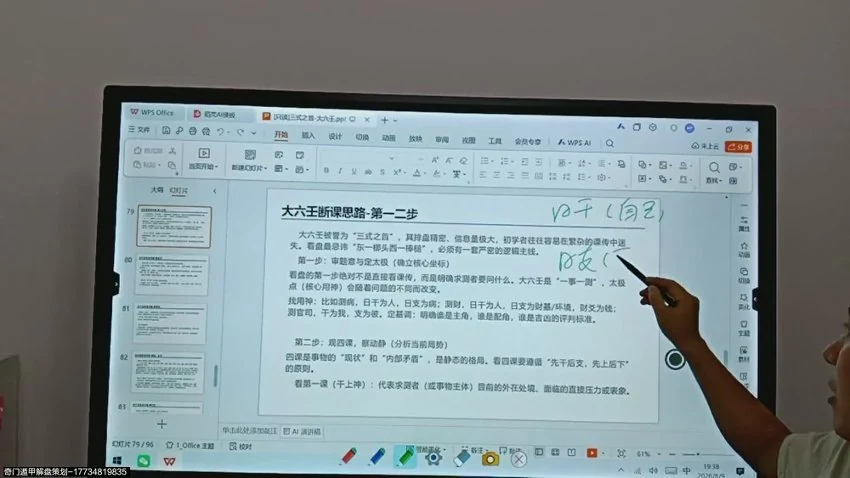 WPS Office
稻壳AI模板
[只读]三式之首-大六壬.pp
文件
开始
插入
设计
切换
动画
放映
审阅
视图
工具
会员专享
WPS AI
未上云
分享
格式刷
粘贴
当页开始
新建幻灯片
查找
大纲
幻灯片
79
80
81
82
83
大六壬断课思路-第一二步
日干(自己
日支(
大六壬被誉为“三式之首”，其排盘精密、信息量极大，初学者往往容易在繁杂的课传中迷
失。看盘最忌讳“东一榔头西一棒槌”，必须有一套严密的逻辑主线。
第一步：审题意与定太极（确立核心坐标）
看盘的第一步绝对不是直接看课传，而是明确求测者要问什么。大六壬是“一事一测”，太极
点（核心用神）会随着问题的不同而改变。
找用神：比如测病，日干为人，日支为病；测财，日干为人，日支为财基/环境，财爻为钱；
测官司，干为我，支为彼。定基调：明确谁是主角，谁是配角，谁是吉凶的评判标准。
第二步：观四课，察动静（分析当前局势）
四课是事物的“现状”和“内部矛盾”，是静态的格局。看四课要遵循“先干后支，先上后下”
的原则。
看第一课（干上神）：代表求测者（或事物主体）目前的外在处境、面临的直接压力或表象。
属性
动画
切换
主题
素材
单击此处添加备注
AI 演讲稿
幻灯片 79 / 96
1_Office 主题
校对
智能美化
备注
批注
61%
中
19:38
2026/6/9
奇门遁甲解盘策划-17734819835